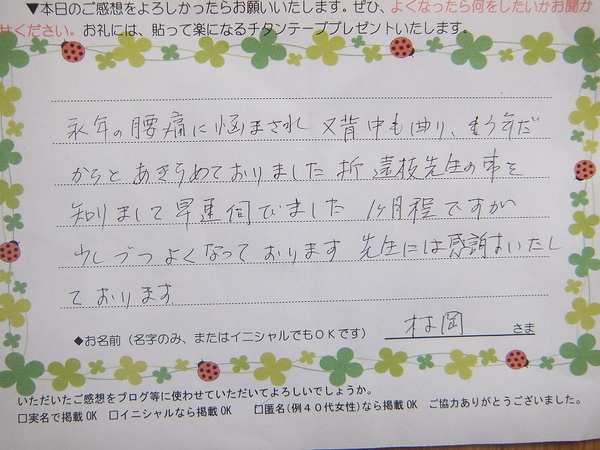 ▼本日のご感想をよろしかったらお願いいたします。ぜひ、よくなったら何をしたいかお聞か
せください。お礼には、貼って楽になるチタンテーププレゼントいたします。
永年の腰痛に悩まされ 又背中も曲り、もう年だ
からと あきらめておりました 折 遠枝先生の事を
知りまして早速伺いました 1ヶ月程ですが
少しづつよくなって おります 先生には感謝をいたし
ております
◆お名前（名字のみ、またはイニシャルでもＯＫです） 村岡 さま
いただいたご感想をブログ等に使わせていただいてよろしいでしょうか。
□実名で掲載 OK □イニシャルなら掲載 OK □匿名(例４０代女性)なら掲載 OK ご協力ありがとうございました。